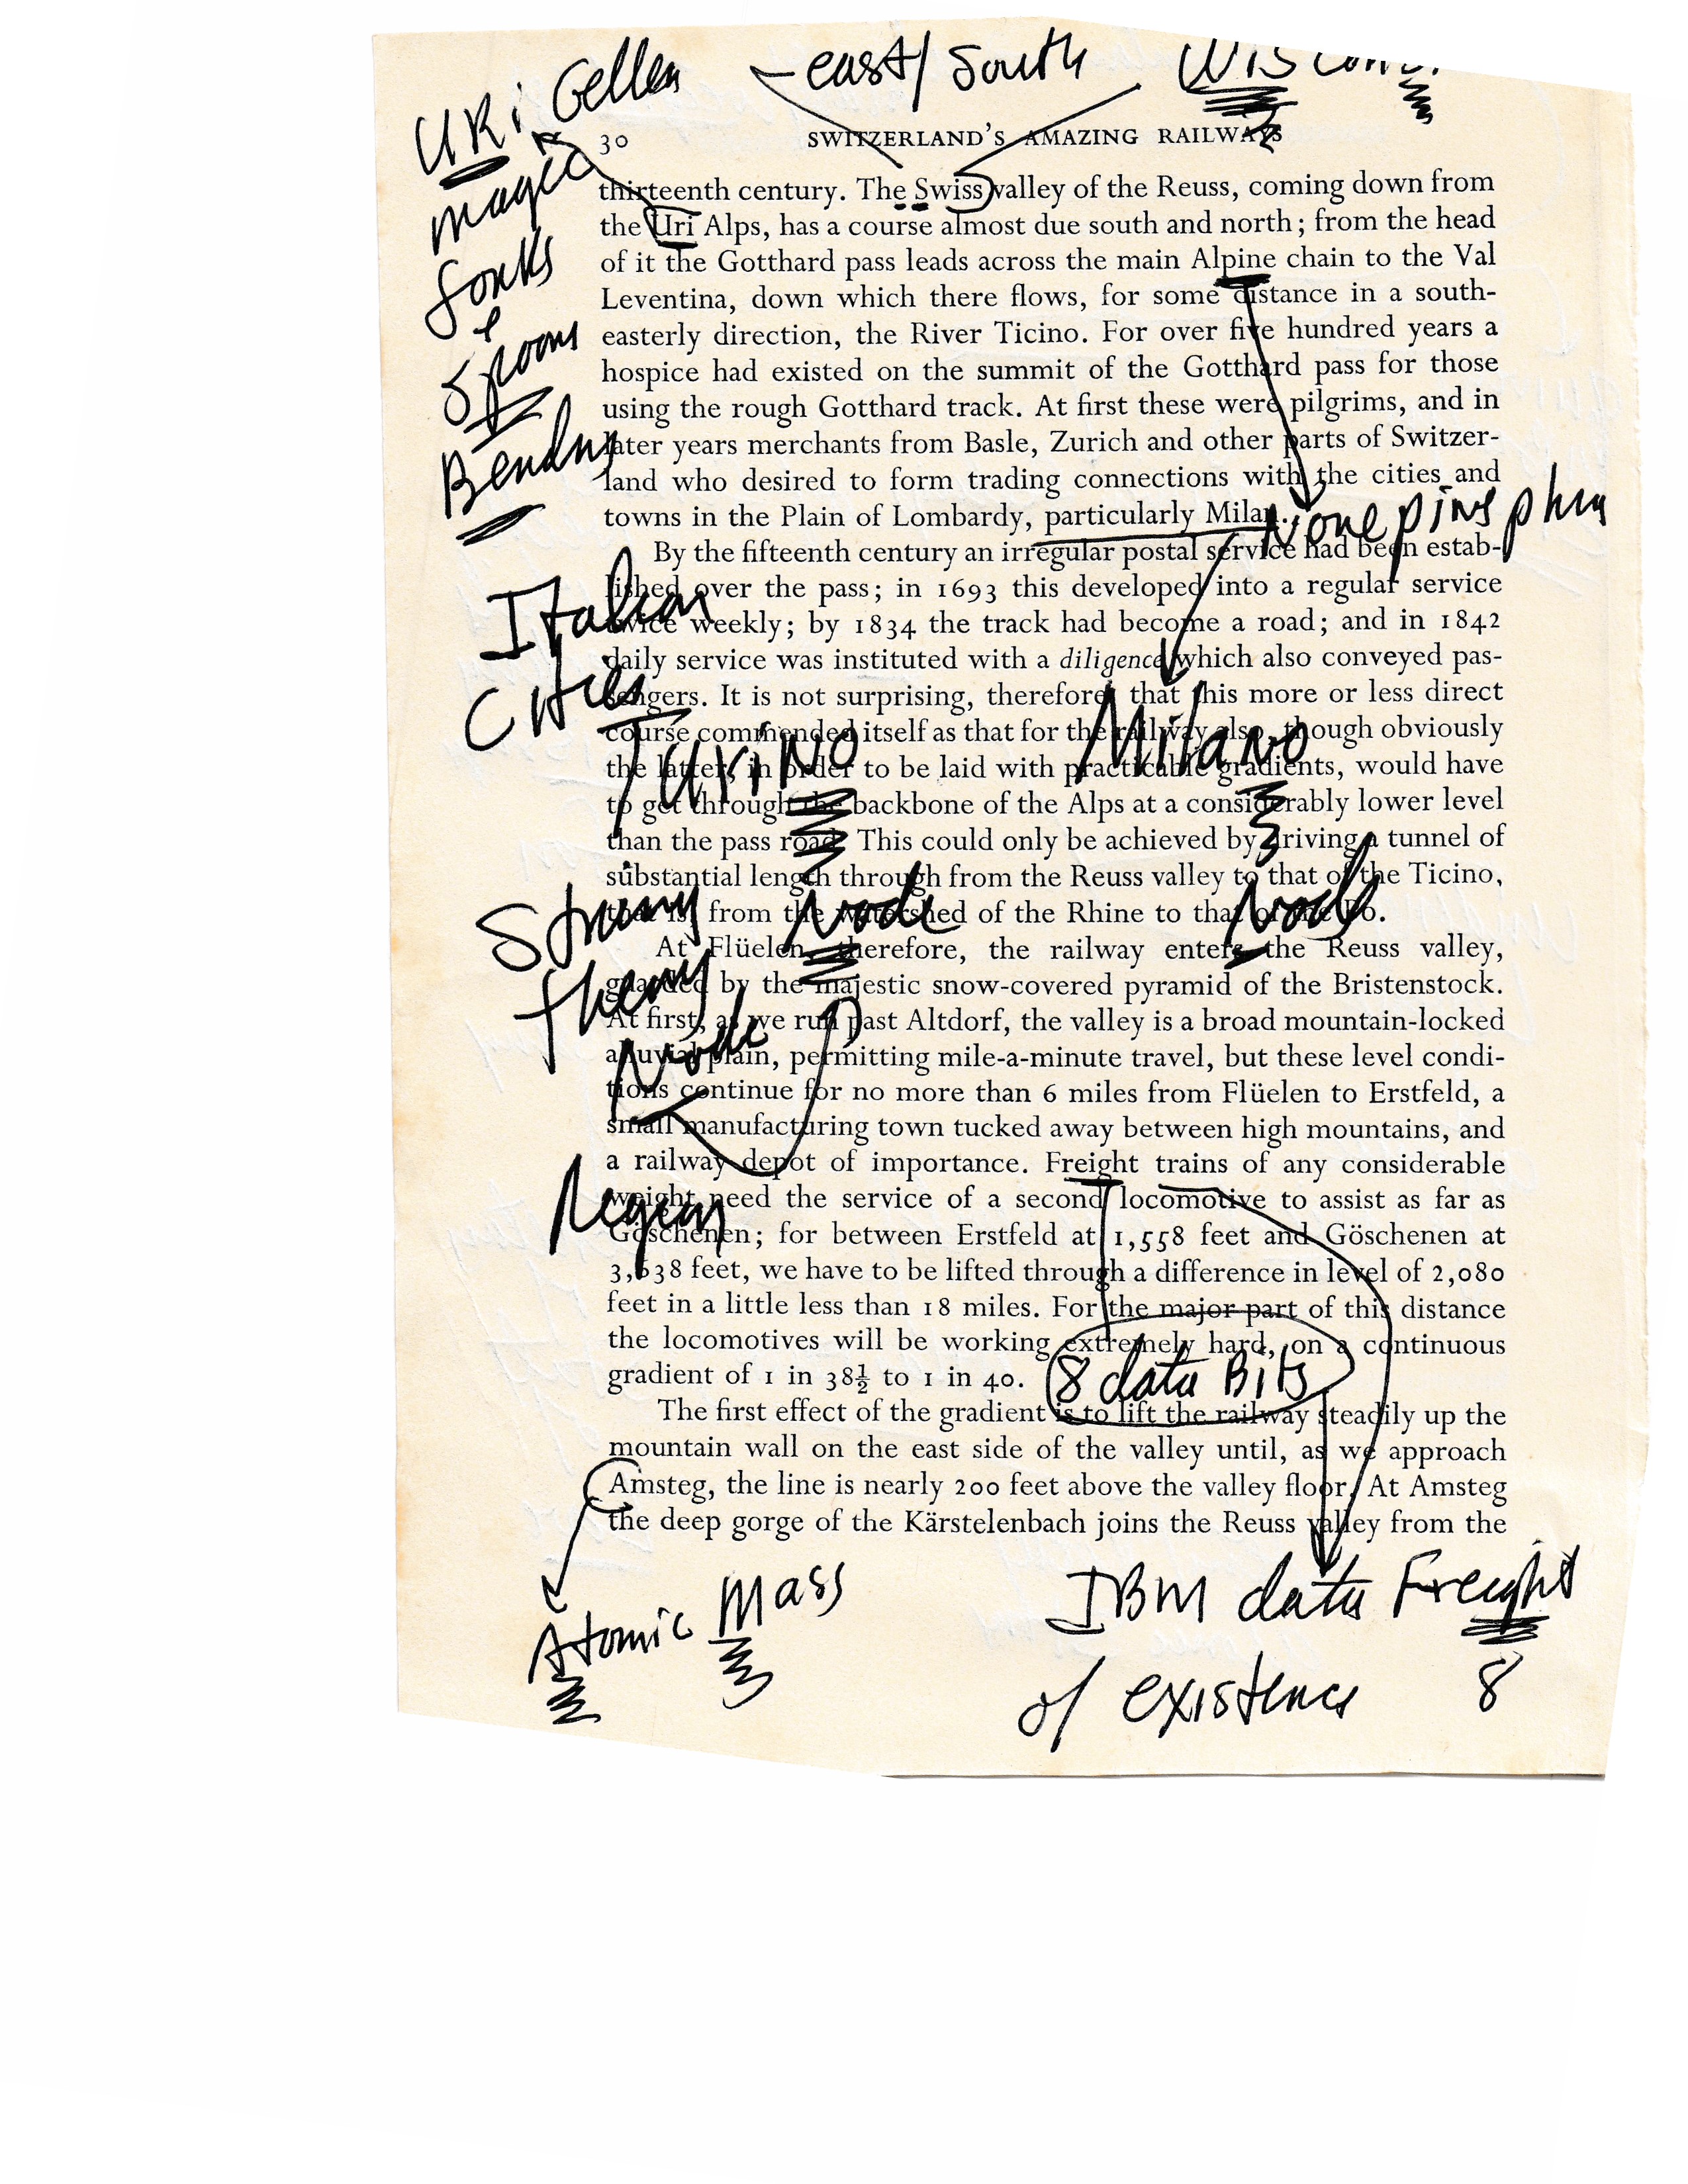 URi Geller
east/South
magic
forks
&
Spoons
Bending
30 SWITZERLAND'S AMAZING RAILWAYS
thirteenth century. The Swiss valley of the Reuss, coming down from
the Uri Alps, has a course almost due south and north; from the head
of it the Gotthard pass leads across the main Alpine chain to the Val
Leventina, down which there flows, for some distance in a south-
easterly direction, the River Ticino. For over five hundred years a
hospice had existed on the summit of the Gotthard pass for those
using the rough Gotthard track. At first these were pilgrims, and in
later years merchants from Basle, Zurich and other parts of Switzer-
land who desired to form trading connections with the cities and
towns in the Plain of Lombardy, particularly Milan.
By the fifteenth century an irregular postal service had been estab-
lished over the pass; in 1693 this developed into a regular service
twice weekly; by 1834 the track had become a road; and in 1842
daily service was instituted with a diligence which also conveyed pas-
sengers. It is not surprising, therefore, that this more or less direct
course commended itself as that for the railway also, though obviously
the latter, in order to be laid with practicable gradients, would have
to get through the backbone of the Alps at a considerably lower level
than the pass road. This could only be achieved by driving a tunnel of
substantial length through from the Reuss valley to that of the Ticino,
that is, from the watershed of the Rhine to that of the Po.
At Flüelen, therefore, the railway enters the Reuss valley,
guarded by the majestic snow-covered pyramid of the Bristenstock.
At first, as we run past Altdorf, the valley is a broad mountain-locked
alluvial plain, permitting mile-a-minute travel, but these level condi-
tions continue for no more than 6 miles from Flüelen to Erstfeld, a
small manufacturing town tucked away between high mountains, and
a railway depot of importance. Freight trains of any considerable
weight need the service of a second locomotive to assist as far as
Göschenen; for between Erstfeld at 1,558 feet and Göschenen at
3,638 feet, we have to be lifted through a difference in level of 2,080
feet in a little less than 18 miles. For the major part of this distance
the locomotives will be working extremely hard, on a continuous
gradient of 1 in 38½ to 1 in 40.
The first effect of the gradient is to lift the railway steadily up the
mountain wall on the east side of the valley until, as we approach
Amsteg, the line is nearly 200 feet above the valley floor. At Amsteg
the deep gorge of the Kärstelenbach joins the Reuss valley from the
None pins
Italian
Cities
Turino
Milano
String
theory
Node
Node
Node
Region
8 data Bits
Atomic Mass
IBM data Freight
of existence 8